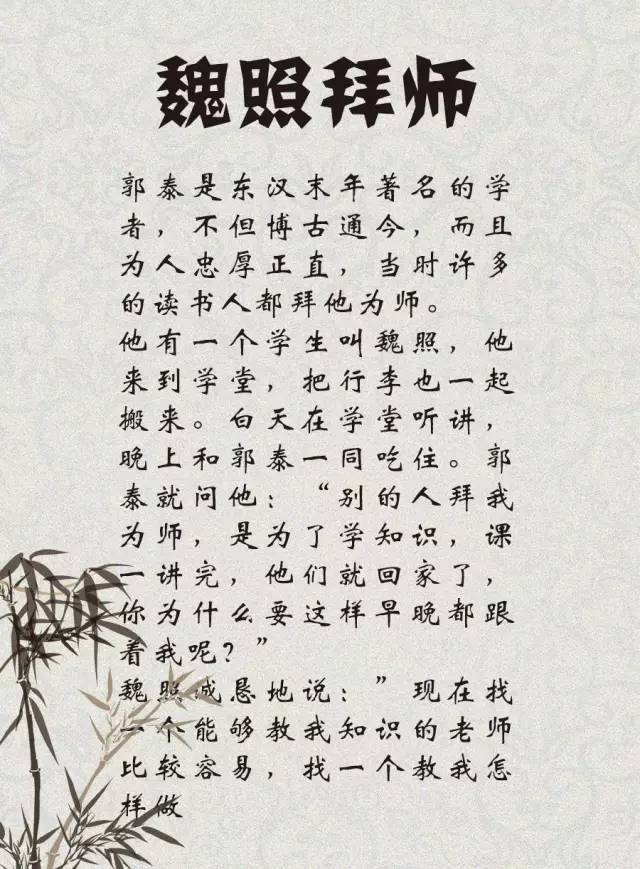 魏照拜师
郭泰是东汉末年著名的学
者，不但博古通今，而且
为人忠厚正直，当时许多
的读书人都拜他为师。
他有一个学生叫魏照，他
来到学堂，把行李也一起
搬来。白天在学堂听讲，
晚上和郭泰一同吃住。郭
泰就问他：“别的人拜我
为师，是为了学知识，课
一讲完，他们就回家了，
你为什么要这样早晚都跟
着我呢？”
魏照诚恳地说：”现在找
一个能够教我知识的老师
比较容易，找一个教我怎
样做